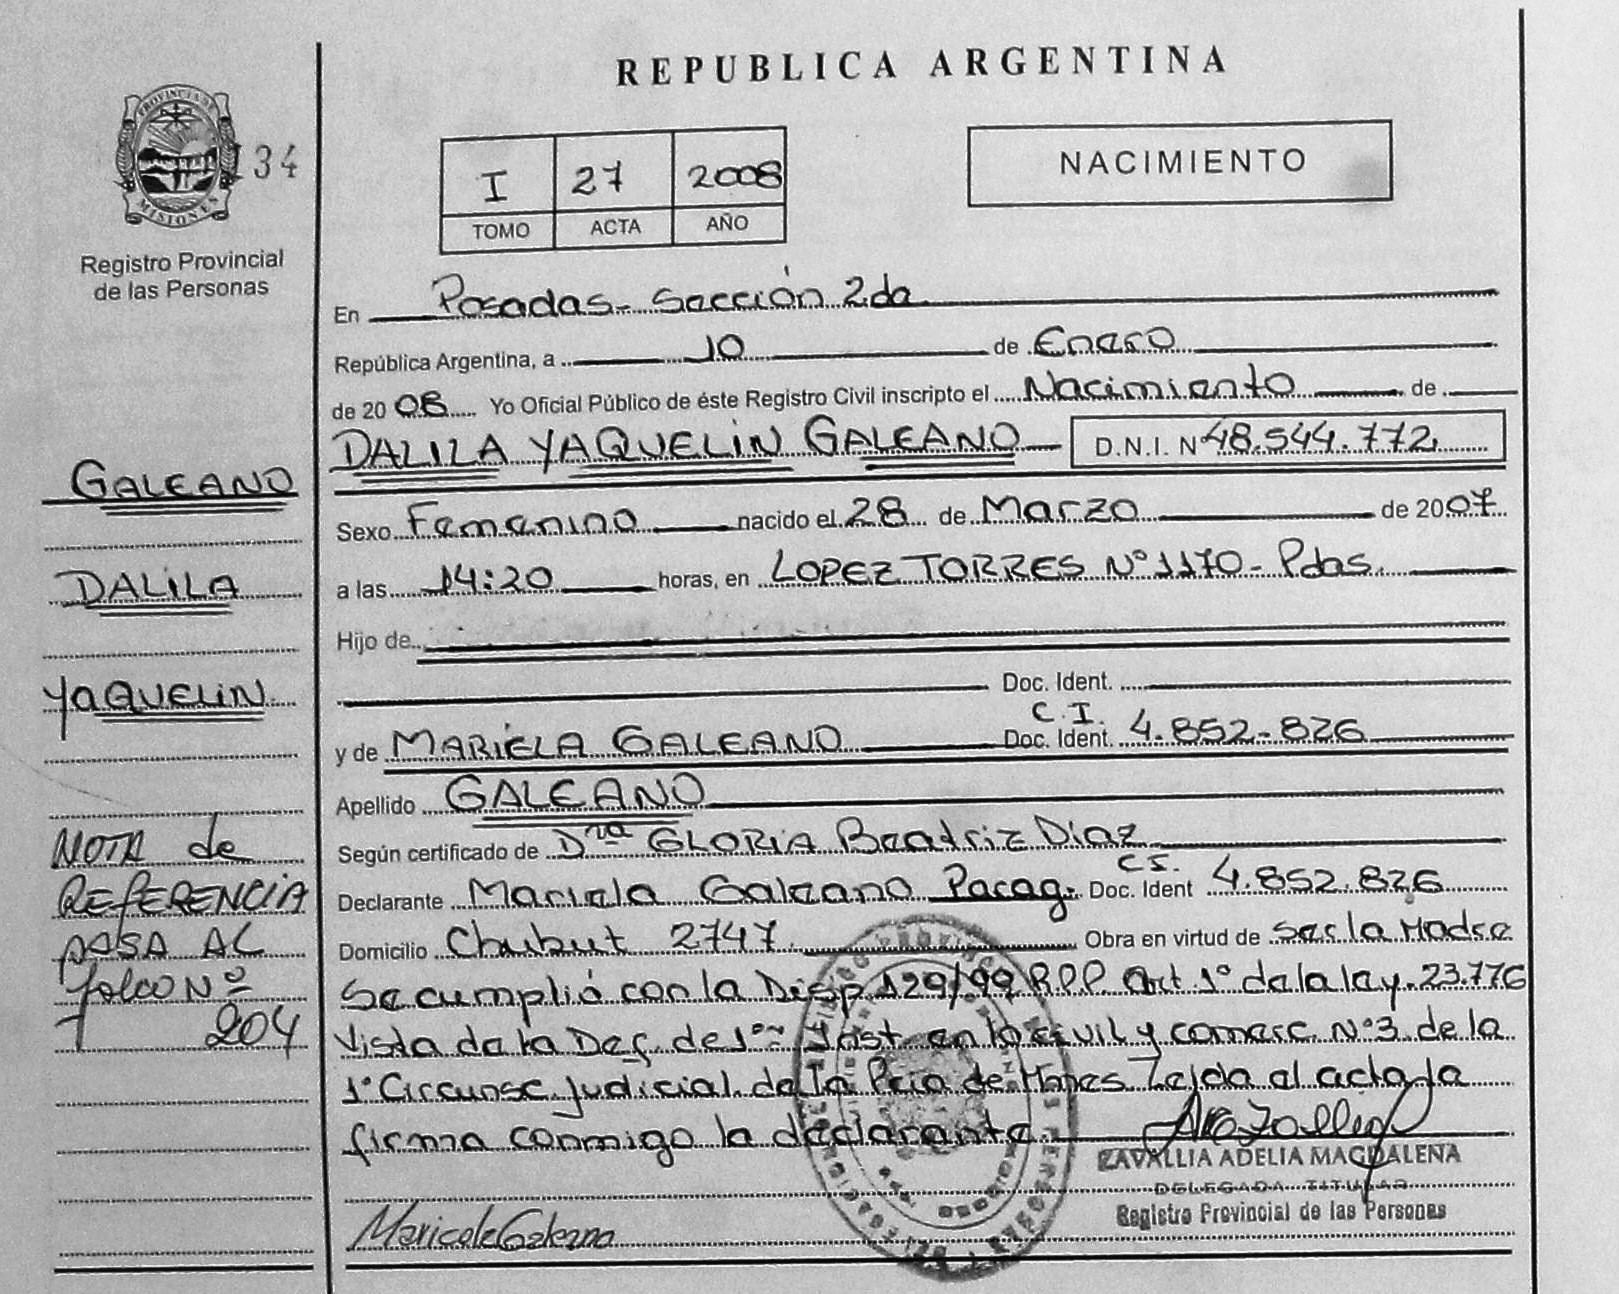 REPUBLICA ARGENTINA
PROVINCIA DE
MISIONES
134
Registro Provincial
de las Personas
I 27 2008
TOMO ACTA AÑO
NACIMIENTO
En Posadas - Sección 2da
República Argentina, a 10 de Enero
de 2008 Yo Oficial Público de éste Registro Civil inscripto el Nacimiento de
DALILA YAQUELIN GALEANO D.N.I. N 48.544.772
Sexo Femenino nacido el 28 de Marzo de 2007
a las 14:20 horas, en LOPEZ TORRES Nº 1170 - Pdas.
Hijo de
Doc. Ident.
C.I.
y de MARIELA GALEANO Doc. Ident. 4.852.826
Apellido GALEANO
Según certificado de Dra GLORIA Beatriz Diaz
C.I.
Declarante Mariela Galeano Parag. Doc. Ident 4.852.826
Domicilio Chubut 2747 Obra en virtud de ser la Madre
Se cumplió con la Disp 129/99 R.P.P. Art 1º de la ley. 23.776
Vista de la Def. de 1era Inst. en lo civil y comerc. Nº 3 de la
1º Circunsc. Judicial. de la Pcia de Mnes. Leida el acta la
firma conmigo la declarante.
ZAVALLIA ADELIA MAGDALENA
DELEGADA TITULAR
Registro Provincial de las Personas
Galeano
GALEANO
DALILA
YAQUELIN
NOTA de
REFERENCIA
PASA AL
folio Nº
204